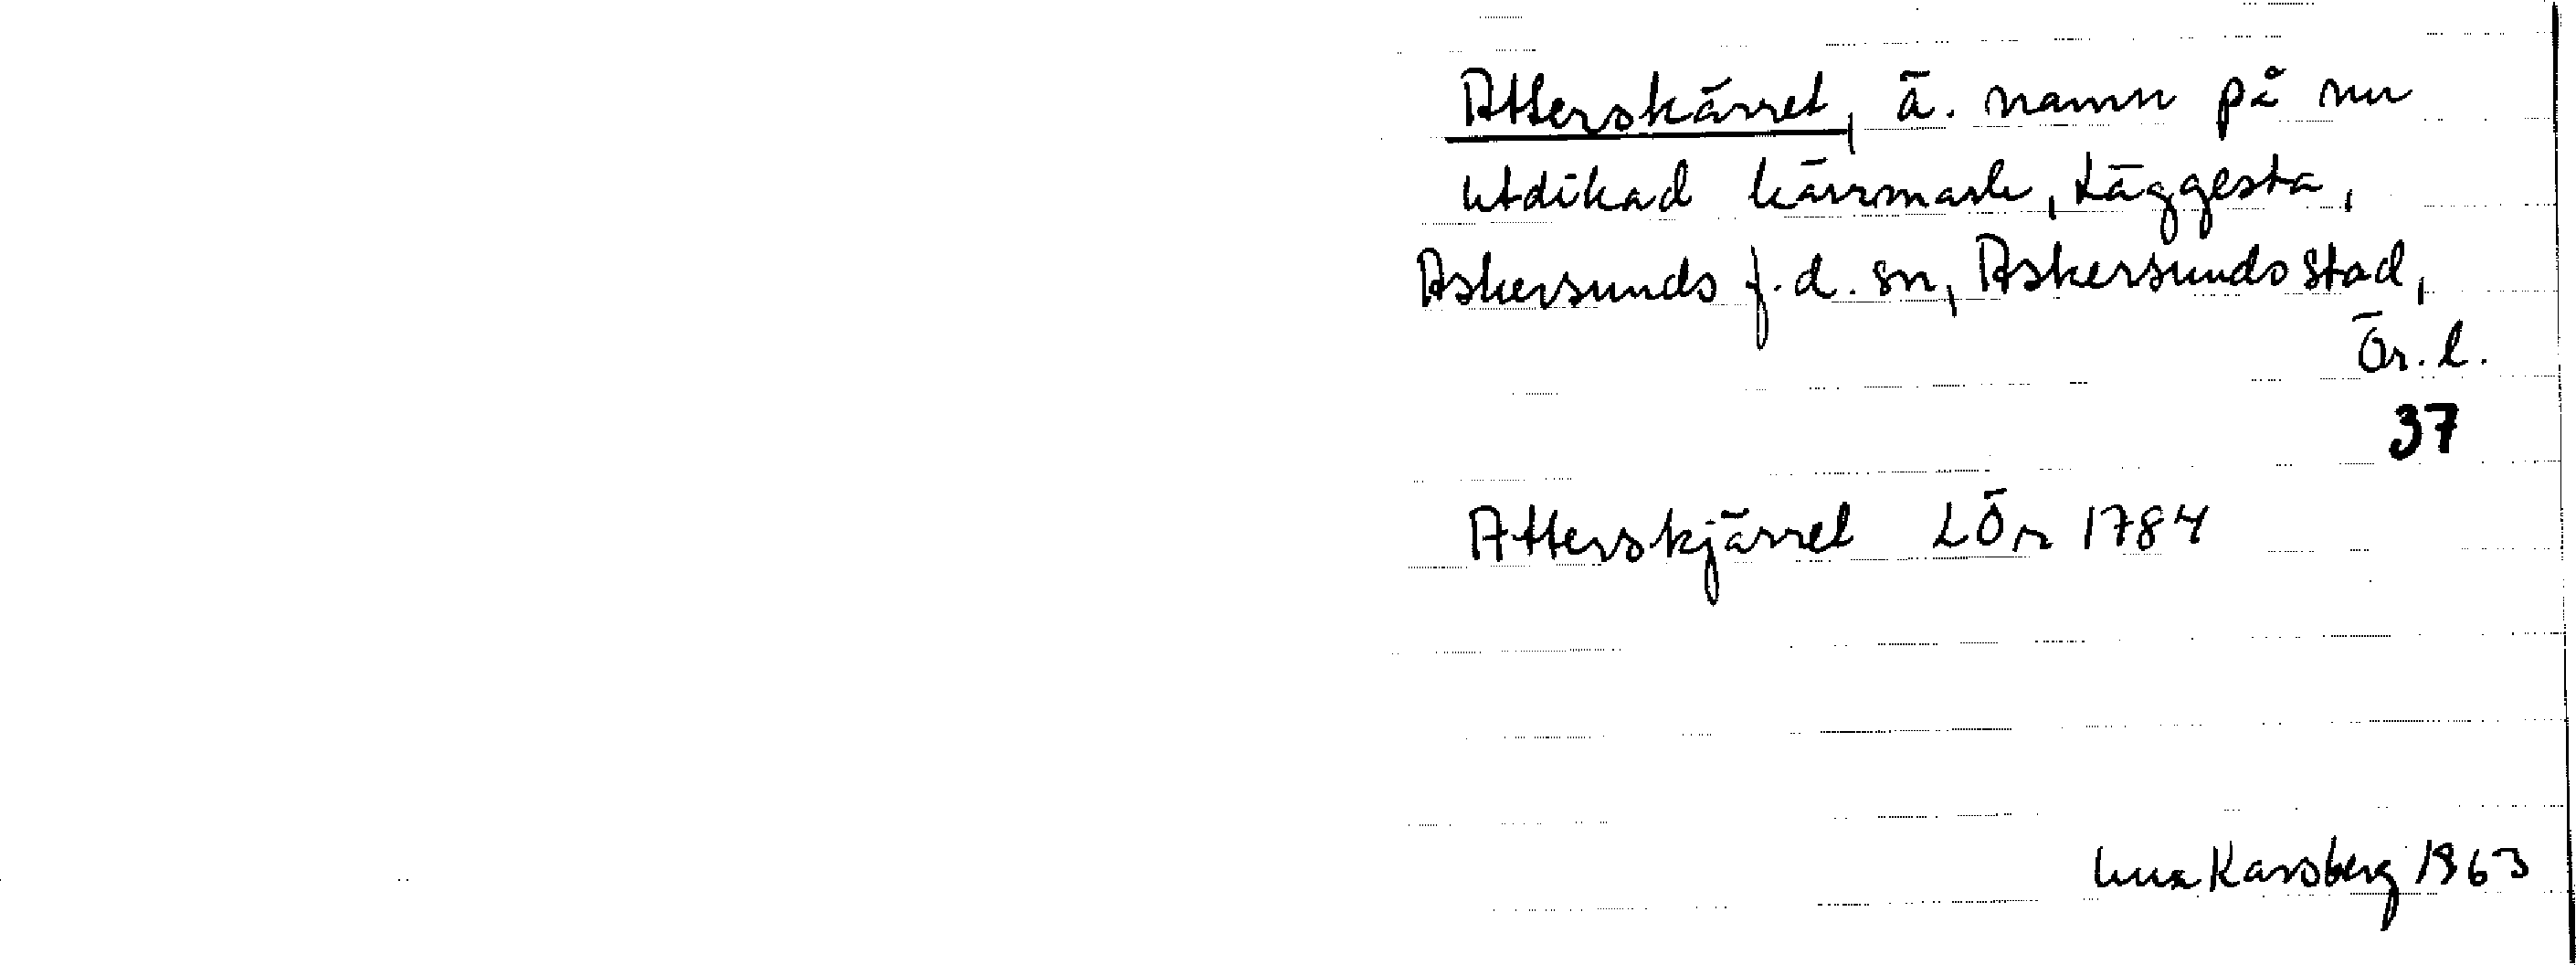 Atterskärret, ä. namn på nu
utdikad kärrmark, Läggesta,
Askersunds f.d. sn, Askersunds stad,
Ör. l.
37
Atterskjärret LÖr 1784
Karsberg 1963